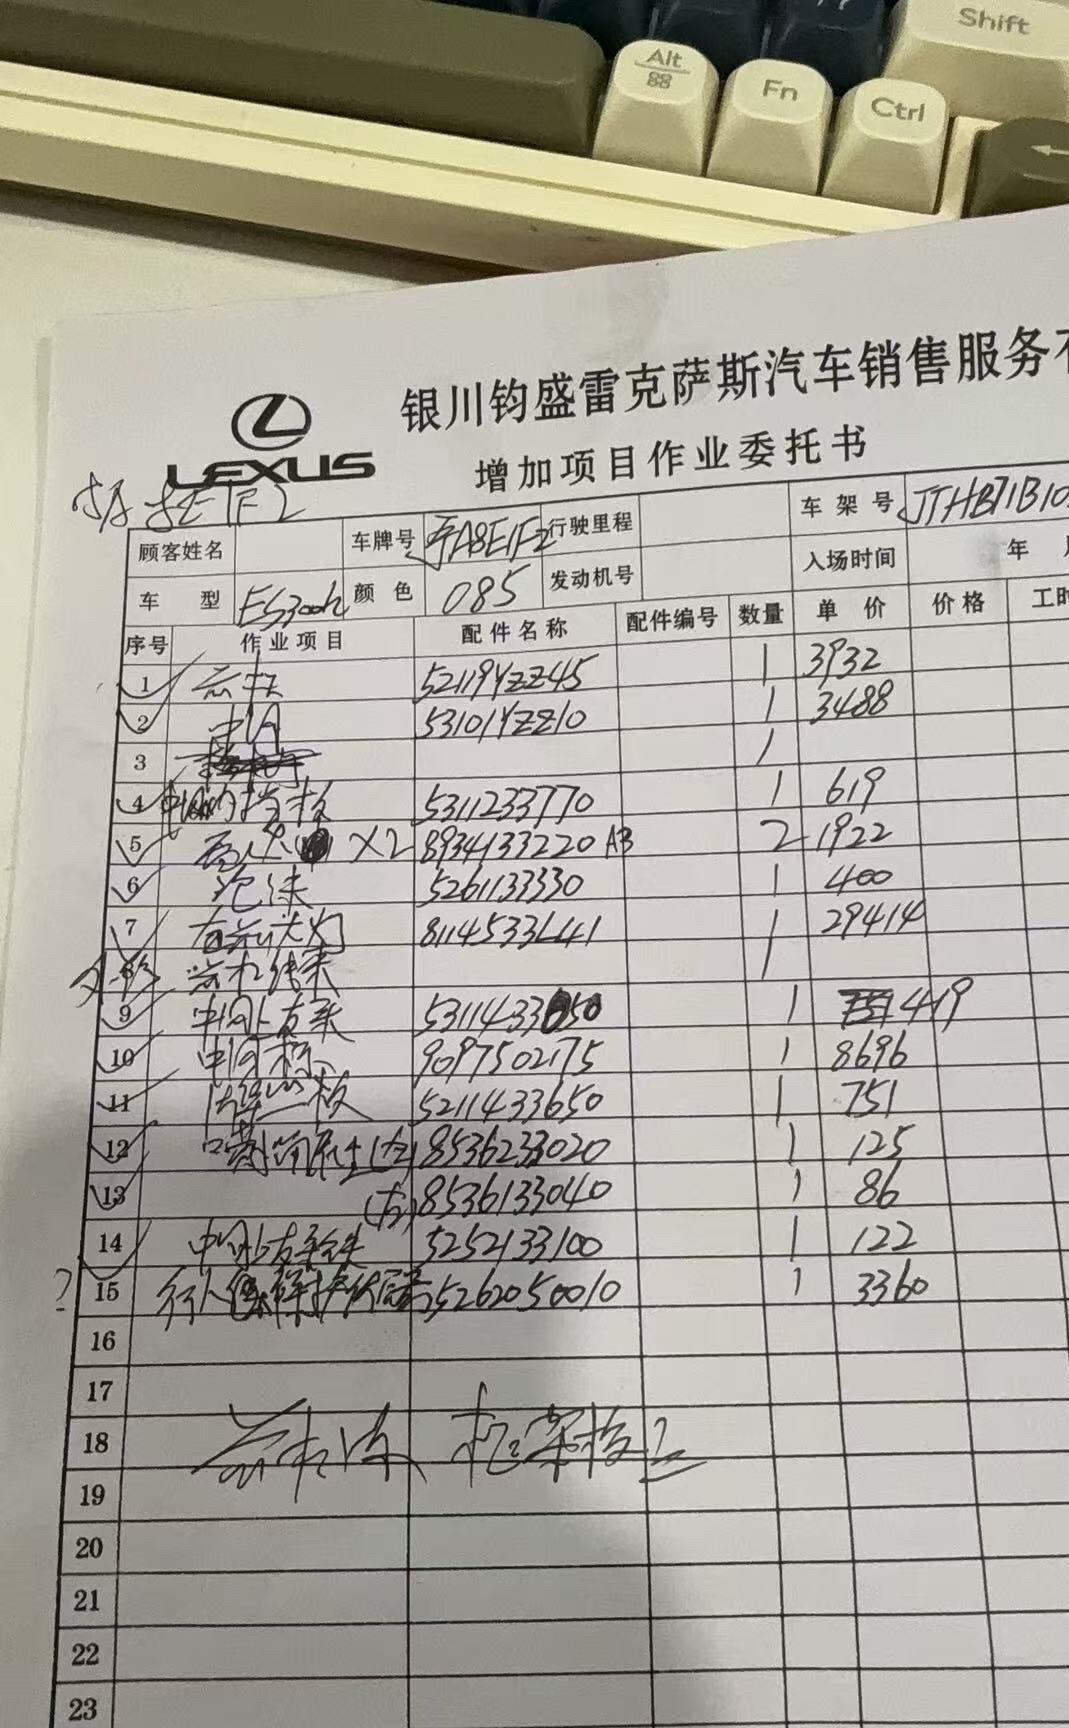 Shift
Alt
Fn
Ctrl
银川钧盛雷克萨斯汽车销售服务
LEXUS
增加项目作业委托书
顾客姓名 车牌号 A8E1F2 行驶里程 车架号 JTHB71B10
车型 ES300h 颜色 085 发动机号 入场时间 年
序号 作业项目 配件名称 配件编号 数量 单价 价格 工时
1 前杠 52119YZZ45 1 3932
2 中网 53101YZZ10 1 3488
3 1
4 5311233770 1 619
5 X2 8934133220 AB 2 1922
6 泡沫 5261133330 1 400
7 右前大灯 8114533L41 1 29414
8 前杠线束 1
9 中网上支架 5311433650 1 419
10 中网标 9097502175 1 8696
11 牌照板 5211433650 1 751
12 (左) 8536233020 1 125
13 (右) 8536133040 1 86
14 5252133100 1 122
15 5262050010 1 3360
16
17
18
19
20
21
22
23